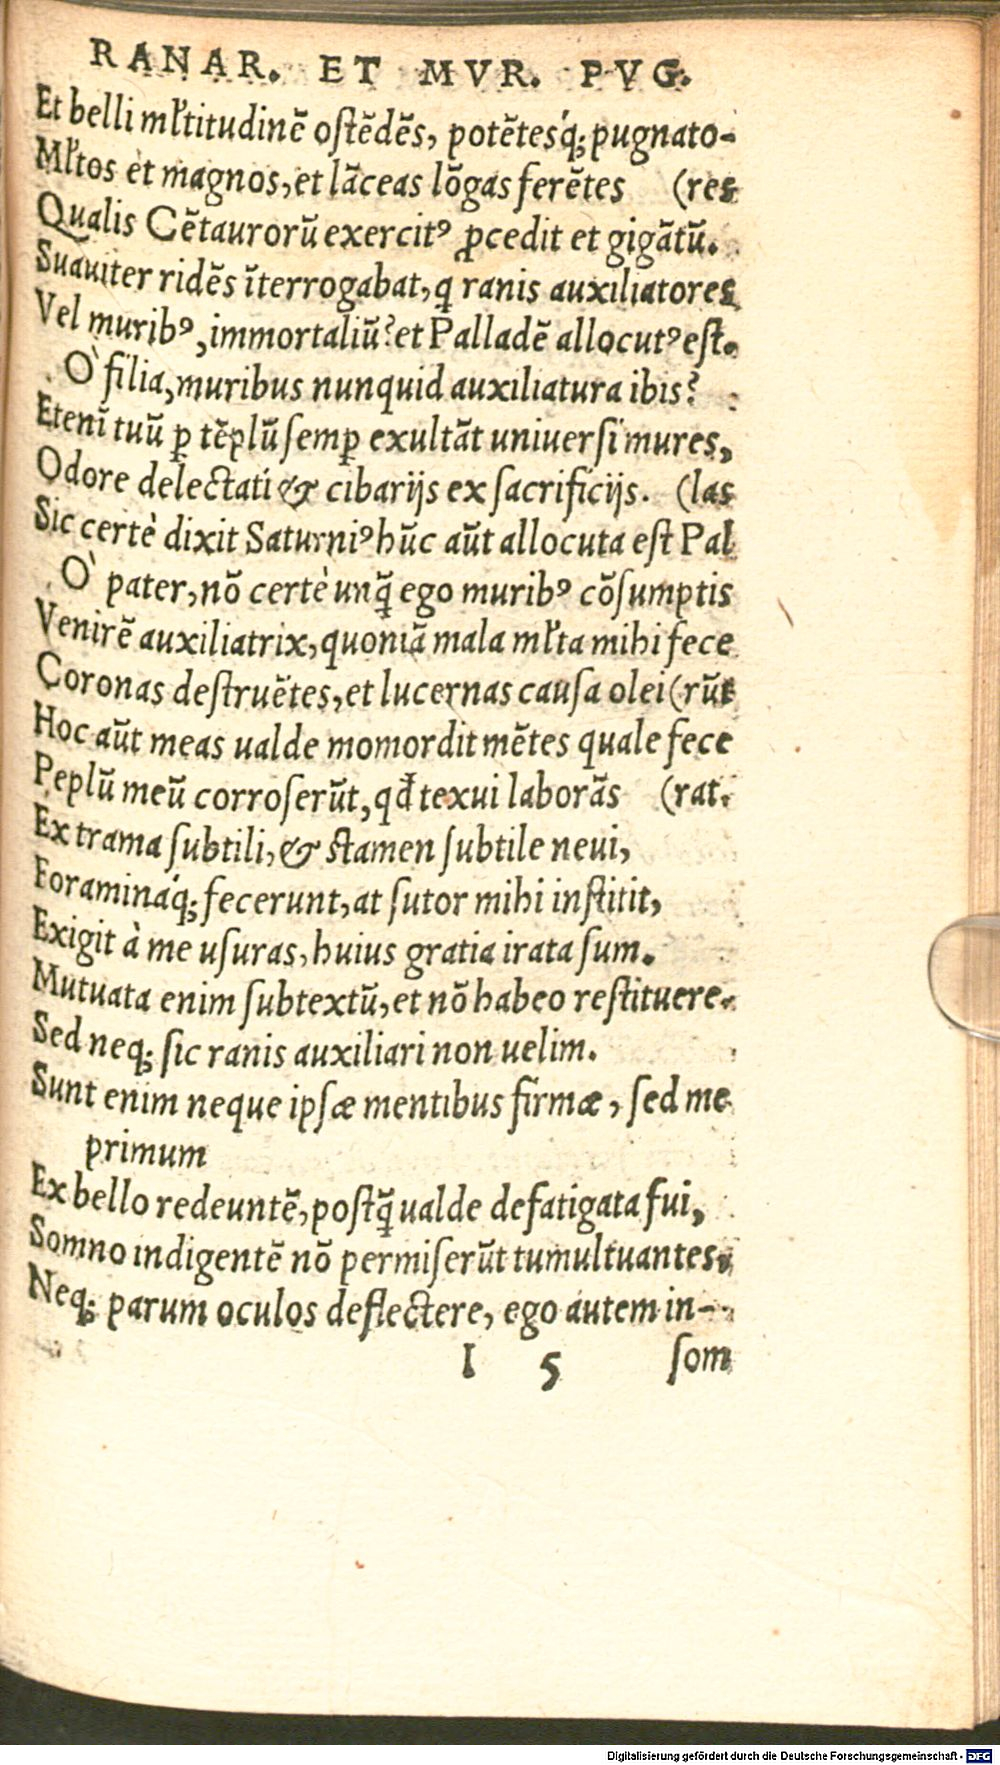 RANAR. ET MVR. PVG.
Et belli mĺtitudinē ostēdēs, potētesq́; pugnato-
Mĺtos et magnos, et lāceas lōgas ferētes (res
Qualis Cētaurorū exercitꝰ ꝓcedit et gigātū.
Suauiter ridēs īterrogabat, q ranis auxiliatores
Vel muribꝰ, immortaliū? et Palladē allocutꝰ est.
Ò filia, muribus nunquid auxiliatura ibis?
Etenī tuū ꝑ tēplū semꝑ exultāt uniuersi mures,
Odore delectati & cibarijs ex sacrificijs. (las
Sic certè dixit Saturniꝰ hūc aūt allocuta est Pal
Ò pater, nō certè unq̄ ego muribꝰ cōsumptis
Venirē auxiliatrix, quoniā mala mĺta mihi fece
Coronas destruētes, et lucernas causa olei (rūt
Hoc aūt meas ualde momordit mētes quale fece
Peplū meū corroserūt, qđ texui laborās (rat.
Ex trama subtili, & stamen subtile neui,
Foraminaq́; fecerunt, at sutor mihi institit,
Exigit à me usuras, huius gratia irata sum.
Mutuata enim subtextū, et nō habeo restituere.
Sed neq; sic ranis auxiliari non uelim.
Sunt enim neque ipsæ mentibus firmæ, sed me
primum
Ex bello redeuntē, postq̄ ualde defatigata fui,
Somno indigentē nō permiserūt tumultuantes,
Neq; parum oculos deflectere, ego autem in-
I 5 som
Digitalisierung gefördert durch die Deutsche Forschungsgemeinschaft - DFG